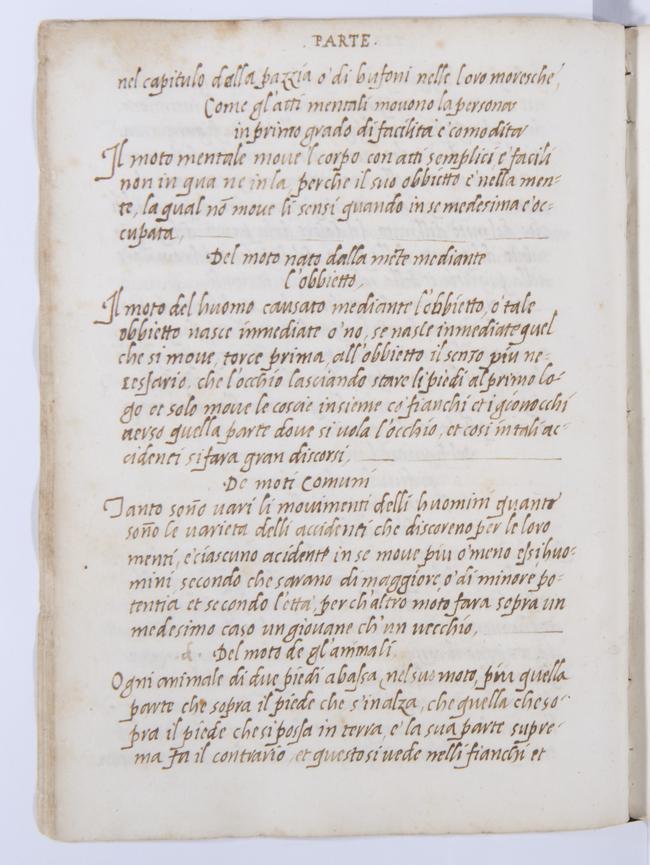 . PARTE .
nel capitulo dalla pazzia o' di bufoni nelle loro moresche,
Come gl'atti mentali mouono la persona
in primo grado di facilità e' comodità
Il moto mentale moue 'l corpo con atti semplici e' facili
non in qua ne in la, perche il suo obbietto e' nella men=
te, la qual nō moue li sensi quando in se medesima e' oc=
cupata,
Del moto nato dalla mēte mediante
l'obbietto,
Il moto del huomo causato mediante l'obbietto, o' tale
obbietto nasce immediate o' no, se nasce inmediate quel
che si moue, torce prima, all'obbietto il senso più ne=
cessario, che l'occhio lasciando stare li piedi al primo lo=
go et solo moue le coscie insieme co' fianchi et i ginocchi
verso quella parte doue si uola l'occhio, et cosi in tali ac=
cidenti si fara gran discorsi,
De moti Comuni
Tanto soño uari li mouimenti delli huomini quanto
soño le uarieta delli accidenti che discoreno per le loro
menti, e' ciascuno acidente in se moue più o' meno essi huo=
mini secondo che sarano di maggiore, o' di minore po=
tentia et secondo l'età, perch'altro moto fara sopra un
medesimo caso un giouane ch'un uecchio,
Del moto de gl'animali.
Ogni animale di due piedi abassa nel suo moto, più quella
parte che sopra il piede che s'inalza, che quella che so=
pra il piede che si possa in terra, e' la sua parte supre=
ma fa il contrario, et questo si uede nelli fianchi et